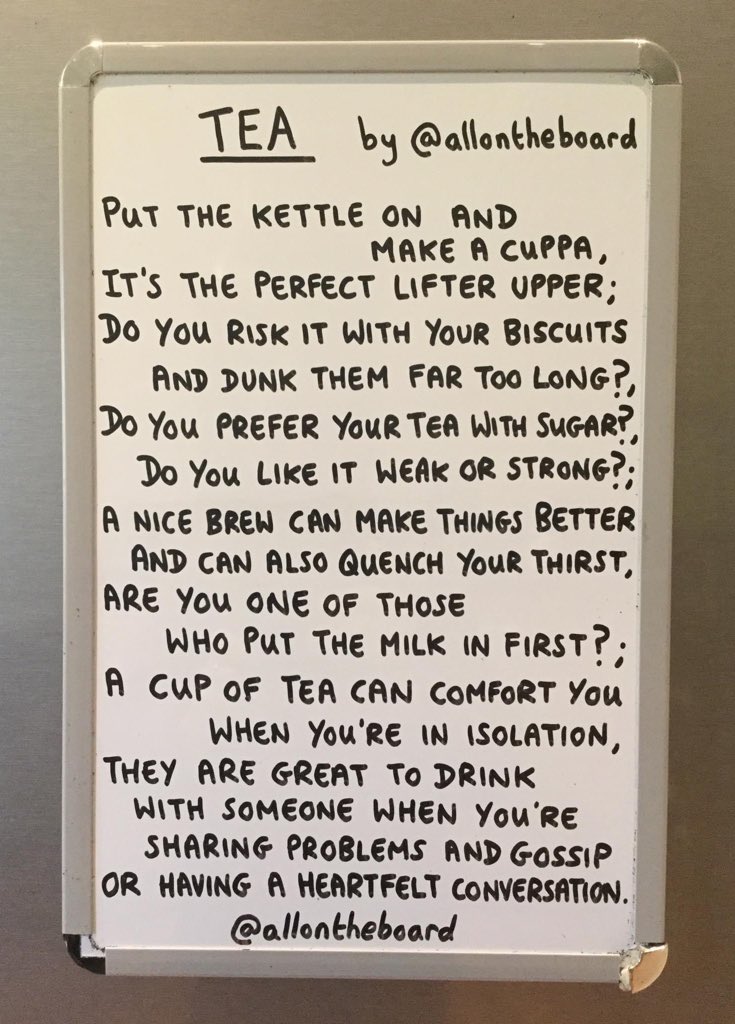 TEA by @allontheboard
PUT THE KETTLE ON AND
MAKE A CUPPA,
IT'S THE PERFECT LIFTER UPPER;
DO YOU RISK IT WITH YOUR BISCUITS
AND DUNK THEM FAR TOO LONG?,
DO YOU PREFER YOUR TEA WITH SUGAR?,
DO YOU LIKE IT WEAK OR STRONG?;
A NICE BREW CAN MAKE THINGS BETTER
AND CAN ALSO QUENCH YOUR THIRST,
ARE YOU ONE OF THOSE
WHO PUT THE MILK IN FIRST?;
A CUP OF TEA CAN COMFORT YOU
WHEN YOU'RE IN ISOLATION,
THEY ARE GREAT TO DRINK
WITH SOMEONE WHEN YOU'RE
SHARING PROBLEMS AND GOSSIP
OR HAVING A HEARTFELT CONVERSATION.
@allontheboard